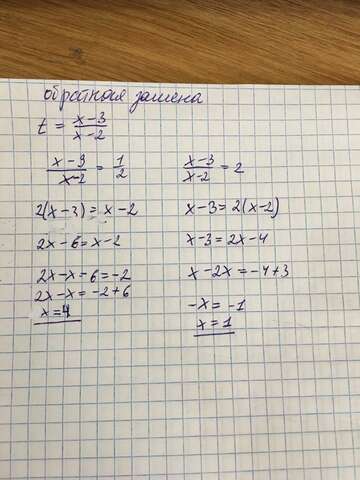 обратная замена
t = x-3/x-2
x-3/x-2 = 1/2
2(x-3) = x-2
2x-6=x-2
2x-x-6=-2
2x-x=-2+6
x=4
x-3/x-2 = 2
x-3=2(x-2)
x-3=2x-4
x-2x=-4+3
-x=-1
x=1